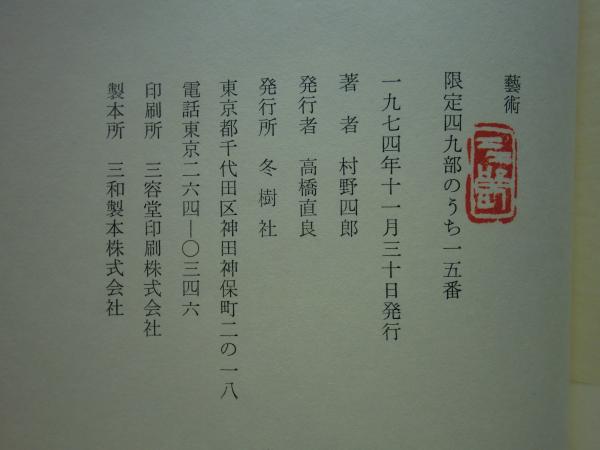 藝術
限定四九部のうち一五番
一九七四年十一月三十日発行
著者 村野四郎
発行者 高橋直良
発行所 冬樹社
東京都千代田区神田神保町二の一八
電話東京二六四―〇三四六
印刷所 三容堂印刷株式会社
製本所 三和製本株式会社